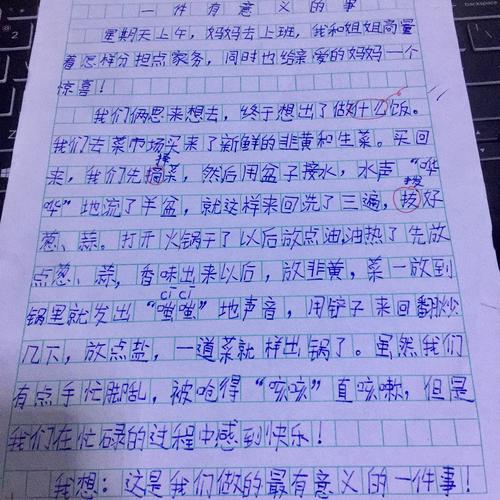 一件有意义的事
星期天上午，妈妈去上班，我和姐姐商量
着怎样分担点家务，同时也给亲爱的妈妈一个
惊喜！
我们俩思来想去，终于想出了做什么饭。
我们去菜市场买来了新鲜的韭黄和生菜。买回
择
来，我们先摘菜，然后用盆子接水，水声“哗
拨
哗”地流了半盆，就这样来回洗了三遍，拔好
葱、蒜。打开火锅干了以后放点油油热了先放
点葱、蒜，香味出来以后，放韭黄，菜一放到
cī cī
锅里就发出“嗤嗤”地声音，用铲子来回翻炒
几下，放点盐，一道菜就样出锅了。虽然我们
有点手忙脚乱，被呛得“咳咳”直咳嗽，但是
我们在忙碌的过程中感到快乐！
我想：这是我们做的最有意义的一件事！